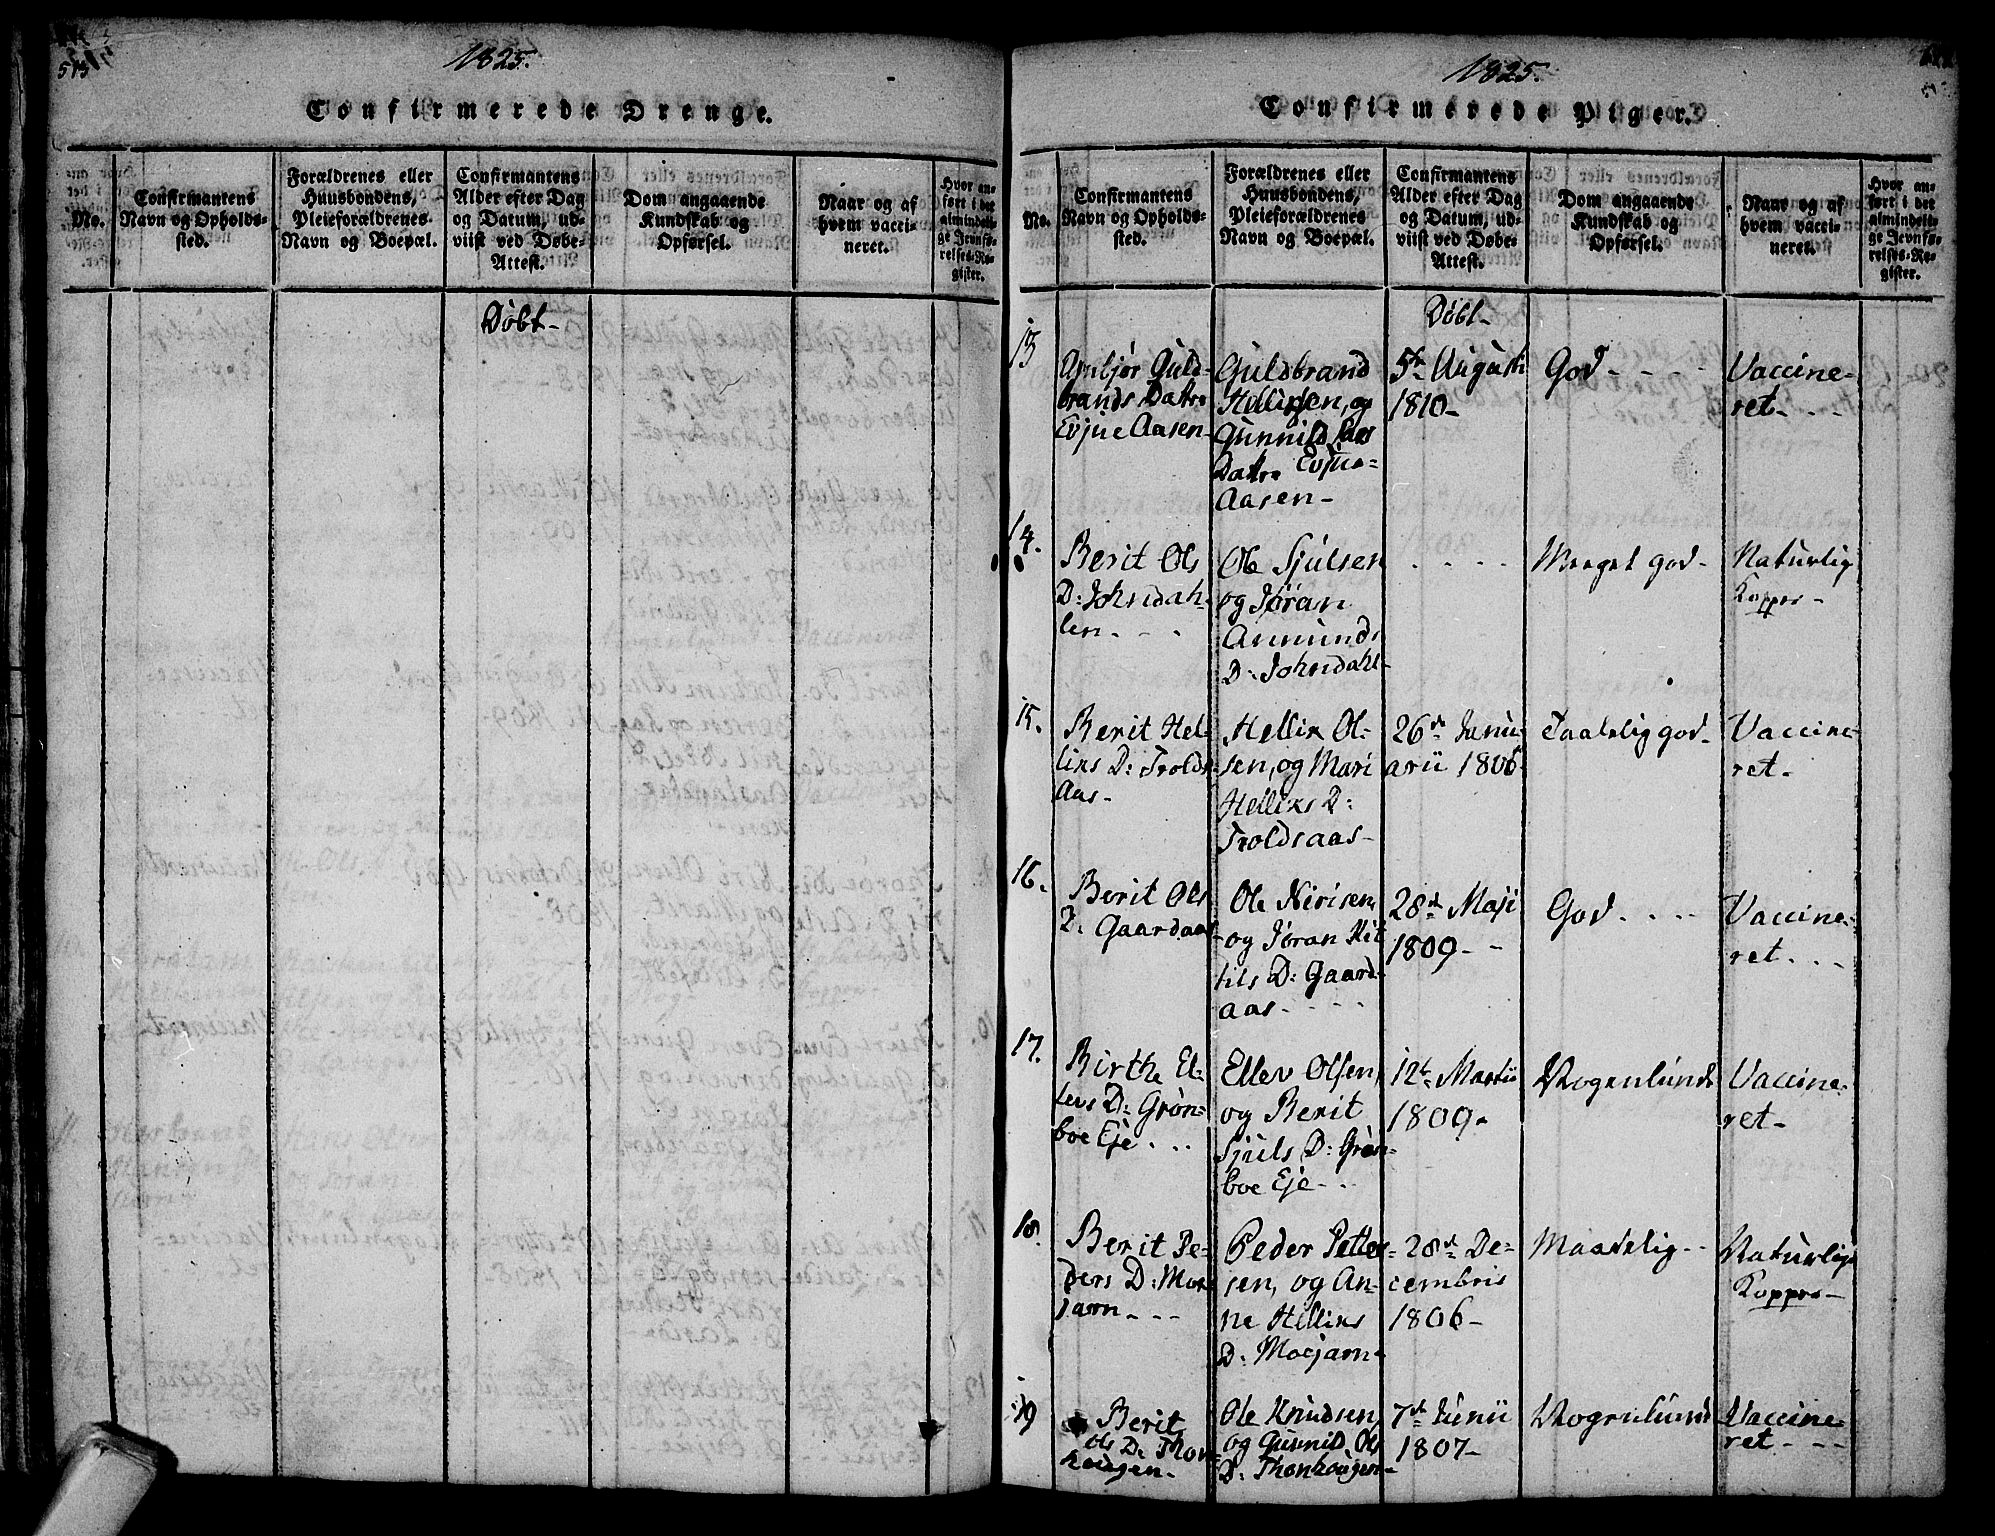 1825.
Confirmerede Drenge.
No.
Confirmantens
Navn og Opholds-
sted.
Forældrenes eller
Huusbondens,
Pleieforældrenes
Navn og Boepæl.
Confirmantens
Alder efter Dag
og Datum, ud-
viist ved Døbe-
Attest.
Dom angaaende
Kundskab og
Opførsel.
Naar og af
hvem vacci-
neret.
Hvor an-
ført i det
almindeli-
ge Jevnfø-
relses-Re-
gister.
Döbt-
1825.
Confirmerede Piger.
No.
Confirmantens
Navn og Opholds-
sted.
Forældrenes eller
Huusbondens,
Pleieforældrenes
Navn og Boepæl.
Confirmantens
Alder efter Dag
og Datum, ud-
viist ved Døbe-
Attest.
Dom angaaende
Kundskab og
Opførsel.
Naar og af
hvem vacci-
neret.
Hvor an-
ført i det
almindeli-
ge Jevnfø-
relses-Re-
gister.
Döbt-
13
Ambjør Guld-
brands Datter
Evjue Aasen-
Guldbrand
Hellissen, og
Gunnild Lars
Datter Evjue-
Aasen-
5te Augusti
1810-
God - - - -
Vaccine-
ret- - -
14.
Berit Ols
D: Johndah-
len- - -
Ole Sjulsen
og Jöran
Anmunds
D: Johndahl-
- - - -
Meeget god-
Naturlig
Kopper-
15.
Berit Hel-
liks D: Trolds-
Aas-
Hellik Ol-
sen, og Mari
Helliks D:
Troldsaas-
26de Janu-
arii 1806-
Taalelig god-
Vaccine-
ret-
16.
Berit Ols
D: Gaardaas-
Ole Kirisen,
og Jöran Kit-
tils D: Gaard-
aas- - - -
28de Maji
1809- -
God - - - -
Vaccine-
ret - - -
17.
Birthe El-
levs D: Grön-
boe Eje - - -
Ellev Olsen,
og Berit
Sjuls D: Grön-
boe Eje- - -
12te Martii
1809-
Nogenlunde
Vaccine-
ret-
18.
Berit Pe-
ders D: Moe-
jarn- - - -
Peder Petter-
sen, og An-
ne Helliks
D: Moejarn-
28de De-
cembris
1806-
Maadelig - -
Naturlige
Kopper-
19
Berit
Ols D: Thon-
hougen-
Ole Knudsen,
og Gunnild Ols
D: Thonhougen-
7de Junii
1807-
Nogenlunde
Vaccine-
ret- - -